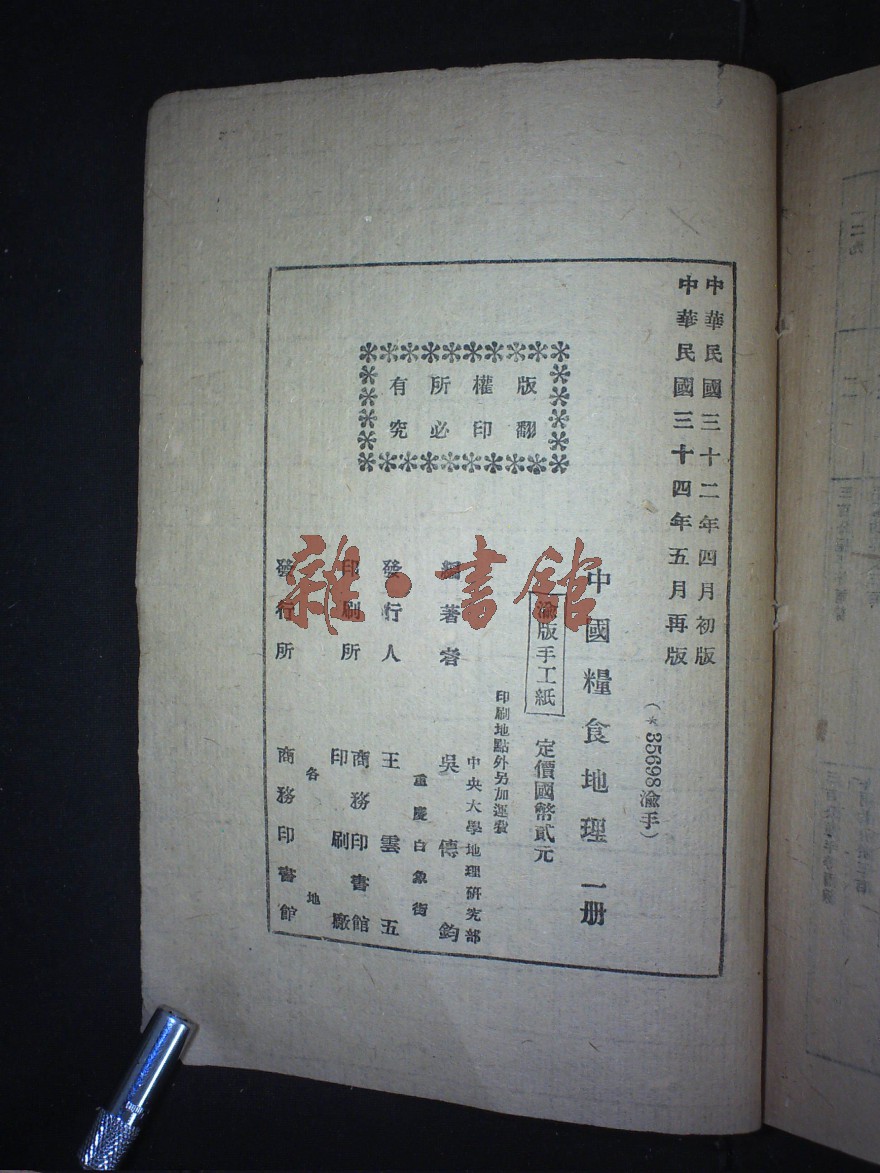 中華民國三十二年四月初版
中華民國三十四年五月再版
(*35698渝手)
中國糧食地理 一册
渝版手工紙
定價國幣貳元
印刷地點外另加運費
版權所有
翻印必究
中央大學地理研究部
編著者 吳傳鈞
重慶白象街
發行人 王雲五
印刷所 商務印書館
印刷廠
各地
發行所 商務印書館
雜·書館